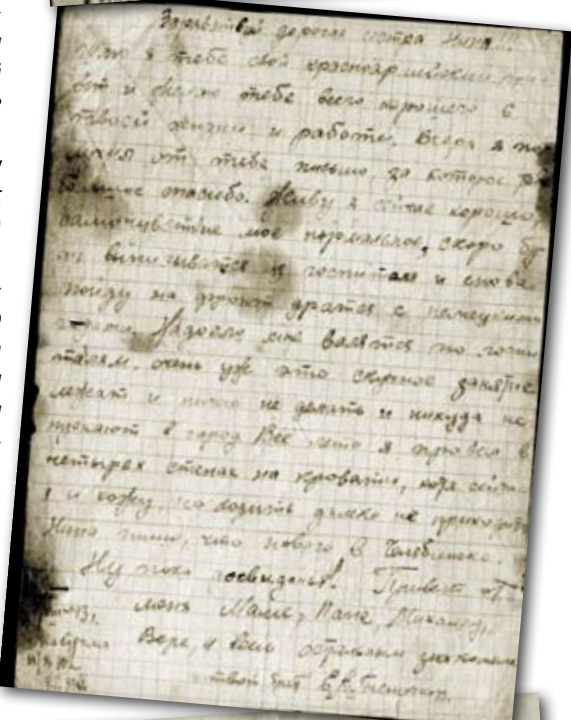 Здравствуй дорогая сестра Нина!!!
шлю я тебе свой красноармейский при-
вет и желаю тебе всего хорошего в
твоей жизни и работе. Вчера я по-
лучил от тебя письмо, за которое
большое спасибо. Живу я сейчас хорошо,
самочувствие мое нормальное, скоро бу-
ду выписыватся из госпиталя и снова
пойду на фронт дратся с немецкими
Надоело мне валятся по госпи-
талям, очень уж это скучное занятие
лежат и ничего не делать и никуда не
пускают в город Все лето я провел в
четырех стенах на кровати, хотя сейчас
я и хожу, но ходить далеко не приходится
Нина пиши, что нового в Челябинске.
Ну пока досвиданья! Привет от
меня Маме, Папе, Михаилу,
Вере, и всем остальным знакомым
твой брат